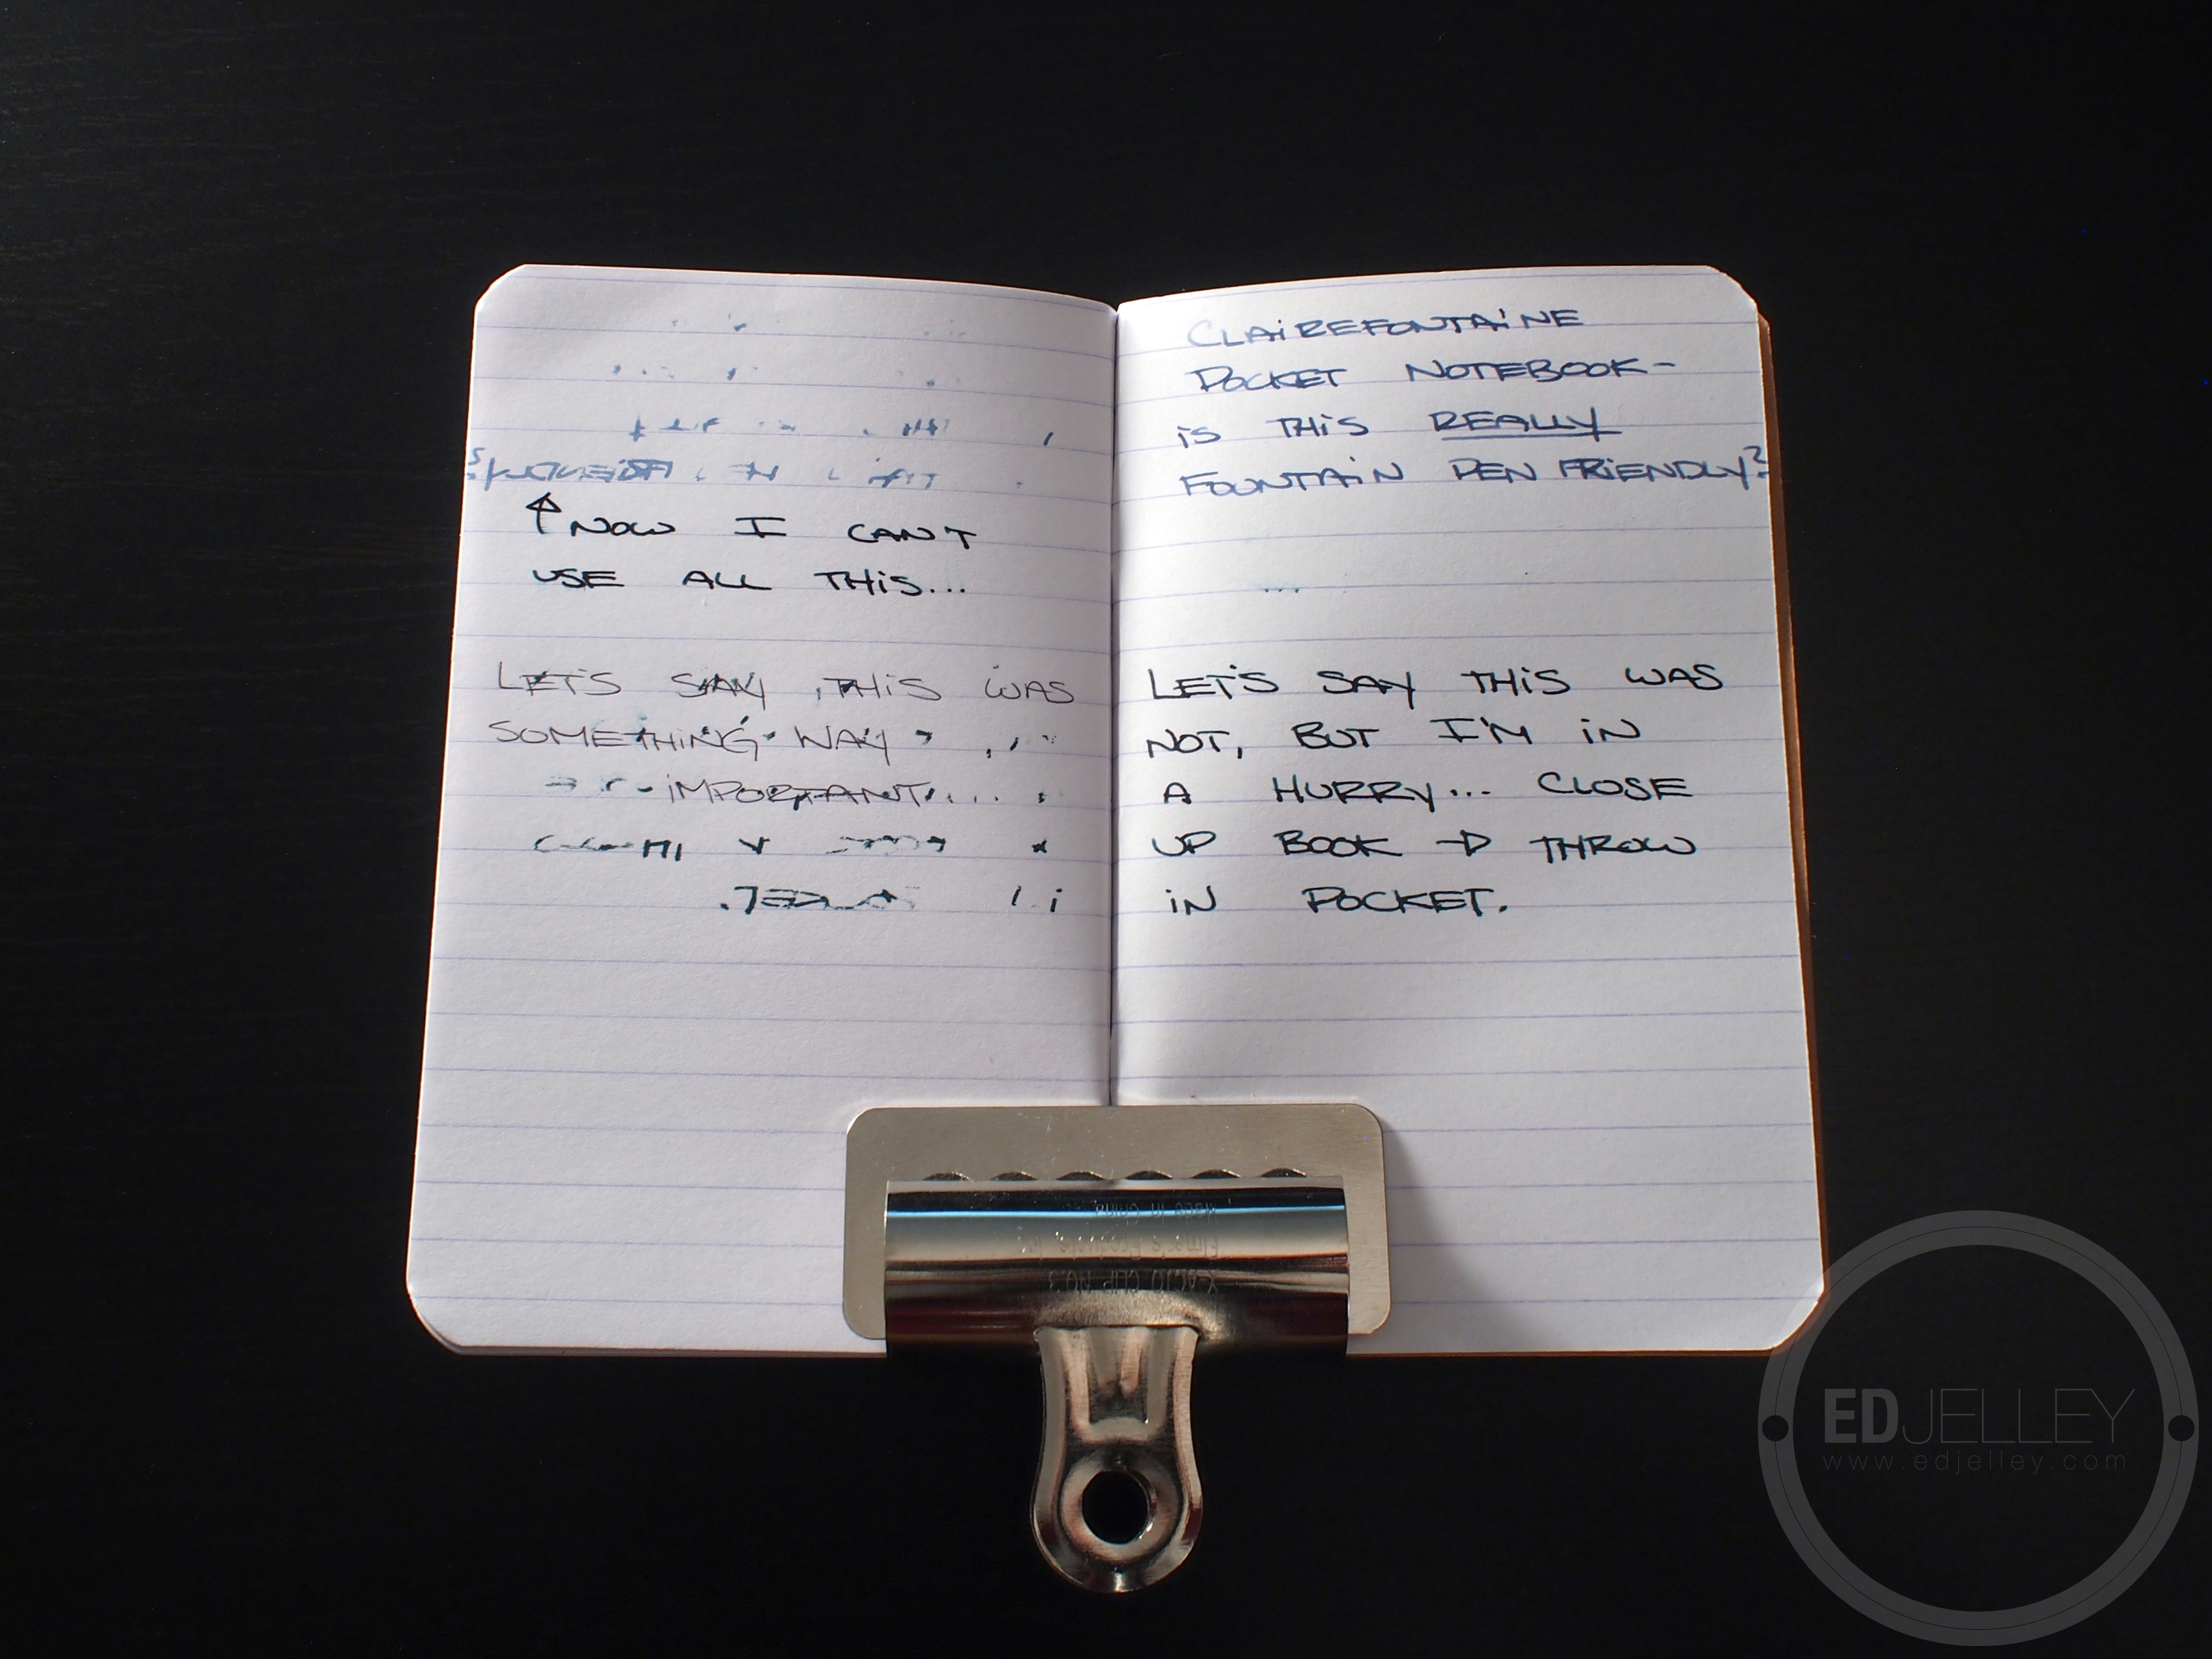 ↑ NOW I CAN'T
USE ALL THIS...
LET'S SAY THIS WAS
SOMETHING WAY
IMPORTANT....
CLAIREFONTAINE
POCKET NOTEBOOK-
IS THIS REALLY
FOUNTAIN PEN FRIENDLY?
LET'S SAY THIS WAS
NOT, BUT I'M IN
A HURRY... CLOSE
UP BOOK → THROW
IN POCKET.
Made in China
Elmer's Products, Inc.
X-ACTO CLIP NO.3
EDJELLEY
www.edjelley.com